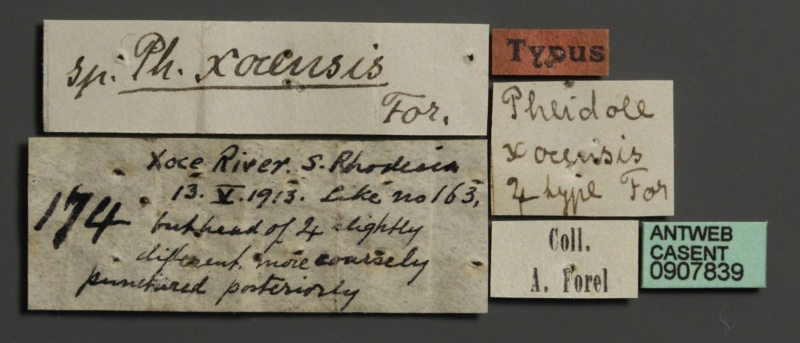 sp. Ph. xocensis
For.
Typus
Pheidole
xocensis
♃ type For
174
Xoce River. S. Rhodesia
13. V. 1913. Like no 163,
but head of ♃ slightly
different, more coarsely
punctured posteriorly
Coll.
A. Forel
ANTWEB
CASENT
0907839